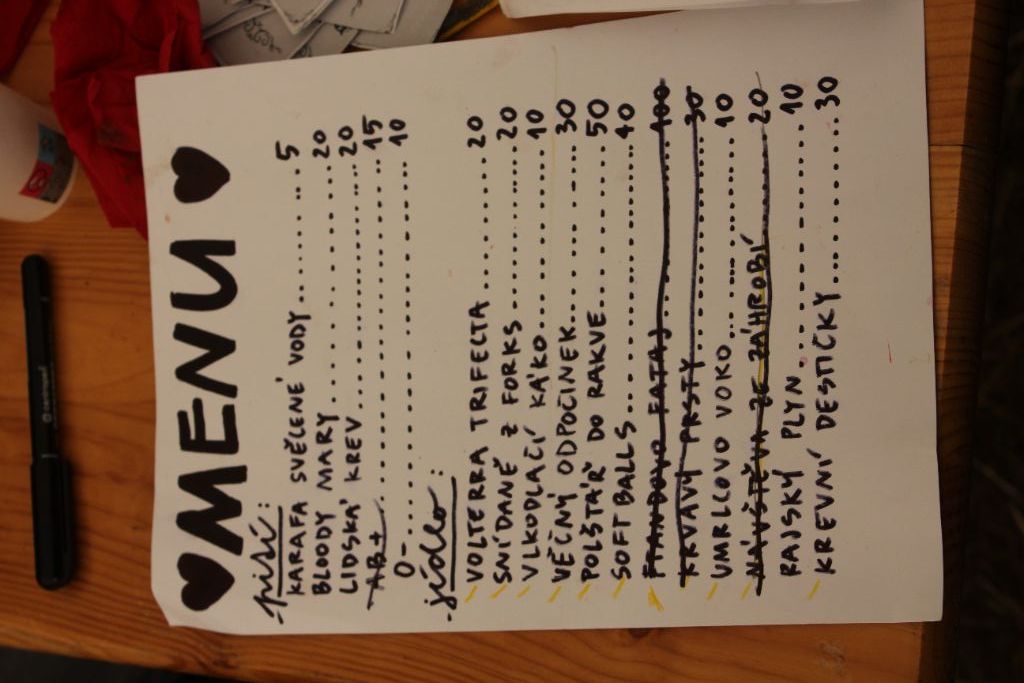 MENU
pití:
KARAFA SVĚCENÉ VODY........ 5
BLOODY MARY........ 20
LIDSKÁ KREV........ 20
AB+........ 15
O-........ 10
jídlo:
VOLTERRA TRIFECTA........ 20
SNÍDANĚ Z FORKS........ 20
VLKODLAČÍ KÁKO........ 10
VĚČNÝ ODPOČINEK........ 30
POLŠTÁŘ DO RAKVE........ 50
SOFTBALLS........ 40
100
KRVAVÝ PRSTY........ 30
UMRLCOVO VOKO........ 10
NÁVŠTĚVA ZE ZÁHROBÍ........ 20
RAJSKÝ PLYN........ 10
KREVNÍ DESTIČKY........ 30